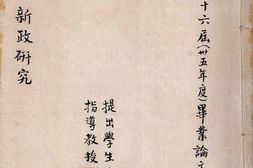 十六屆(卅五年度)畢業論文
新政研究
提出學生
指導教授